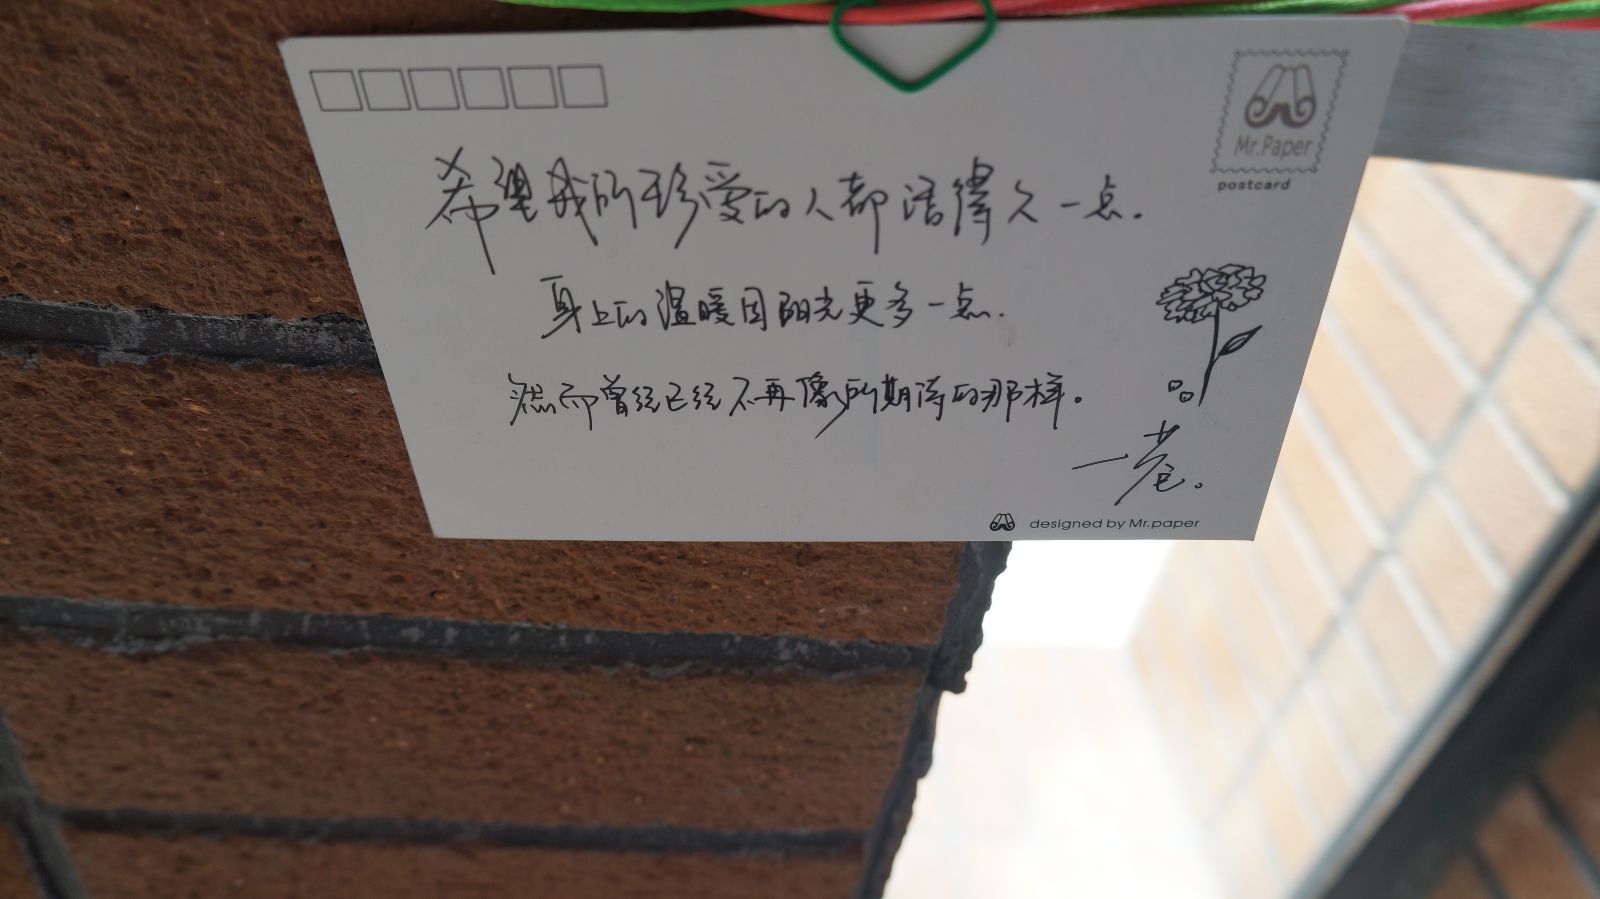 Mr.Paper
postcard
希望我所珍爱的人都活得久一点.
身上的温暖因阳光更多一点.
然而曾经已经不再像所期待的那样。
designed by Mr.paper